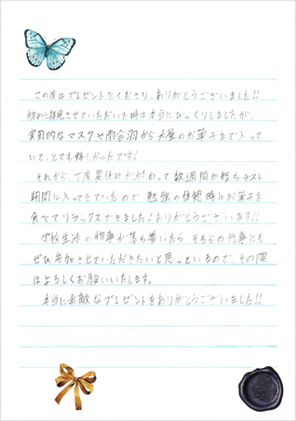 この度はプレゼントをくださり、ありがとうございました!!
初めに拝見させていただいた時は本当にびっくりしましたが、
実用的なマスクや雨合羽から大量のお菓子まで入って
いて、とても嬉しかったです!
それから、丁度夏休みが終わって数週間が経ちテスト
期間に入ってきていたので勉強の休憩時にお菓子を
食べてリラックスできました!ありがとうございます!!
学校生活の物事が落ち着いたら、そちらの行事にも
ぜひ参加させていただきたいと思っているので、その際
はよろしくお願いいたします。
本当に素敵なプレゼントをありがとうございました!!